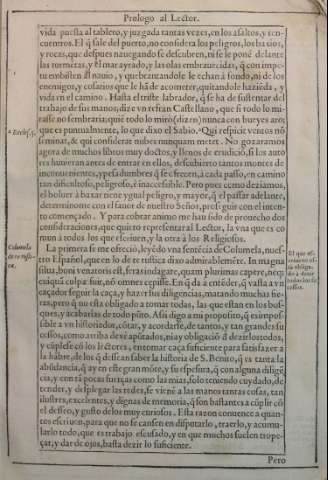 Prologo al Lector.
vida puesta al tablero, y juzgada tantas vezes, en los asaltos, y ren-
cuentros. El q̃ sale del puerto, no considera los peligros, los baxios,
y rocas, que despues nauegando se descubren, ni se le ponẽ delante
las tormẽtas, y el mar ayrado, y las olas embrauecidas, q̃ con impe-
tu embisten al nauio, y quebrantandole le echan à fondo, ni de los
enemigos, y cosarios que le hã de acometer, quitandole haziẽda, y
vida en el camino. Hasta el triste labrador, q̃ se ha de sustentar del
trabajo de sus manos, dize vn refran Castellano, que si todo lo mi-
rasse no sembraria: quié todo lo mirò (dizẽ) nunca con bueyes arò;
que es puntualmente, lo que dixo el Sabio. Qui respicit ventos nõ
seminat, & qui considerat nubes nunquam metet. No gozaramos
agora de muchos libros muy doctos, y llenos de erudiciõ, si los auto
res huuieran antes de entrar en ellos, descubierto tantos montes de
inconuenientes, y pesadumbres q̃ se ofrecen, à cada passo, en camino
tan dificultoso, peligroso, è inaccessible. Pero pues como deziamos,
el boluer à baxar tiene ygual peligro, y mayor, q̃ el passar adelante,
determineme con el fauor de nuestro Señor, proseguir con el inten-
to començado. Y para cobrar animo me han sido de prouecho dos
consideraciones, que quiero representar al Lector, la vna que es co
mun à todos los que escriuen, y la otra à los Religiosos.
La primera se me ofreciò, leyẽdo vna sentẽcia de Columela, nues-
tro Español, que en lo de re rustica dixo admirablemẽte. In magna
silua, boni venatoris est, feras indagare, quam plurimas capere, nec
cuiquã culpæ fuit, nõ omnes cepisse. En q̃ da à entẽder, q̃ vasta à vn
caçador seguir la caça, y hazer sus diligencias, matando muchas fie-
ras, pero q̃ no està obligado à tomar todas, las que estan en los bos-
ques, y acabarlas de todo pũto. Assi digo à mi proposito, q̃ es impos-
sible à vn historiador, cõtar, y acordarse, de tantos, y tan grandes su
cessos, como arriba dexè apũtados, ni ay obligaciõ à dezirlos todos,
y cũplese cõ los Lectores, en tomar caça suficiente para satisfazer à
la hãbre, de los q̃ dessean saber la historia de S. Benito, q̃ es tanta la
abũdancia, q̃ ay en este gran mõte, y su espesura, q̃ con alguna diligẽ
cia, y con tã pocas fuerças como las mias, solo teniendo cuydado, de
tender, y desplegar las redes, se viẽnẽ à las manos tantas cosas, tan
ilustres, excelentes, y dignas de memoria, q̃ son bastantes à cũplir cõ
el desseo, y gusto de los muy curiosos. Esta razon conuence a quan-
tos escriuen, para que no se cansen en disputarlo, traerlo, y acumu-
larlo todo, que es trabajo escusado, y en que muchos suelen trope-
çar, y dar de ojos, basta dezir lo suficiente.
Pero
Eccles. 11.
Columela
de re rusti-
ca.